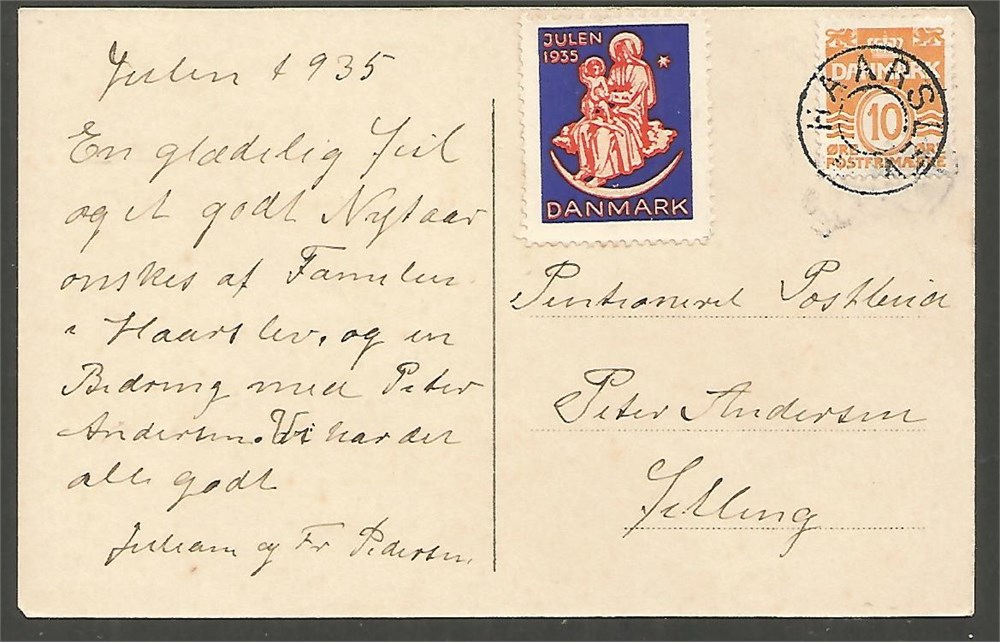 Julen 1935
En glædelig Jul
og et godt Nytaar
onskes af Familien
i Haarslev, og en
Bedring med Peter
Andersen. Vi har det
alle godt
og Fr Pedersen.
JULEN
1935
DANMARK
DANMARK
10
HAARSLEV
Pentioneret Postbud
Peter Andersen